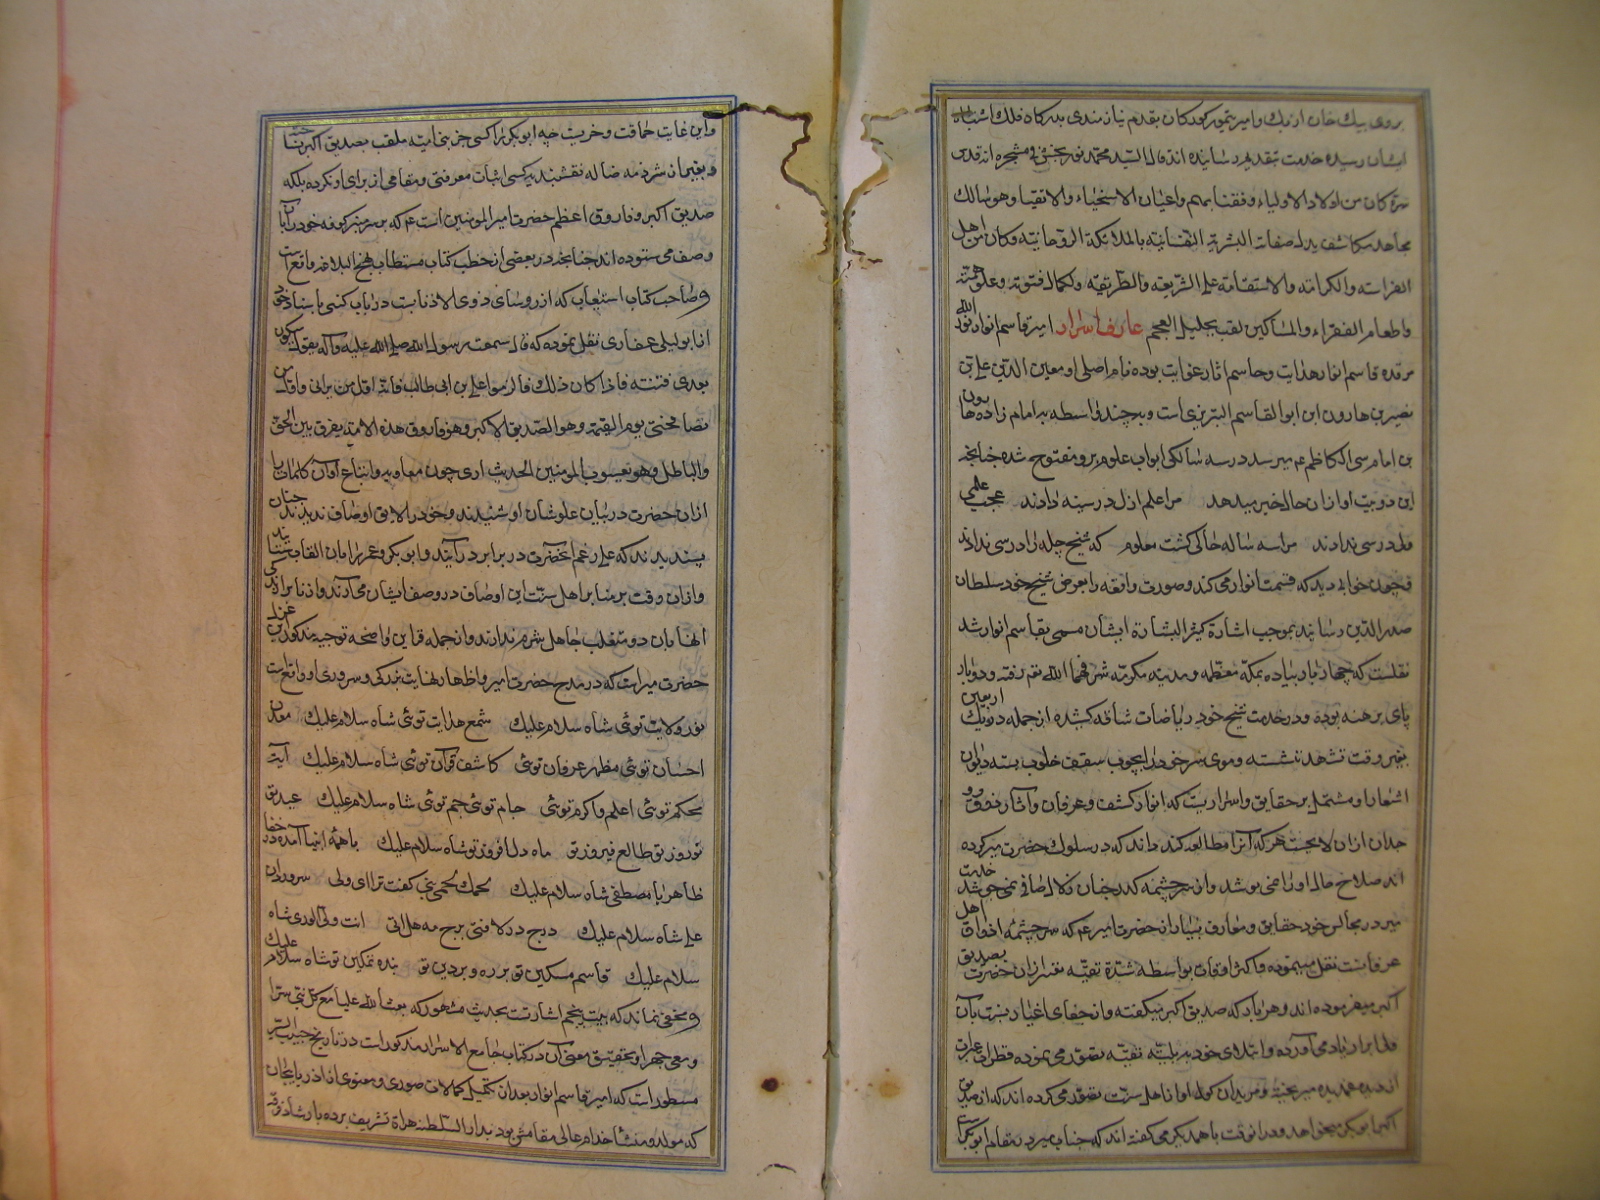 بروی بیک خان ازبک و امیر تیمور کورکان بقدم نیازمندی بدرکاه فلک اشتباه
ایشان رسیده خدمت بتقدیم رسانیده اند قال السید محمد نوربخش فی مشجره انه قدس
سره کان من اولاد الاولیاء وفقنا بهم واعیان الاسخیاء والاتقیا وهو سالک
مجاهد مکاشف بدل صفات البشریة النفسانیه بالملائکة الروحانیه وکان من اهل
الفراسه والکرامه والاستقامة علی الشریعه والطریقه ولکمال فتوته وعلو همته
واطعام الفقراء والمساکین لقب بجلیل العجم عارف اسرار امیر قاسم انوار نور الله
مرقده قاسم انوار هدایت و حاسم اثار غوایت بوده نام اصلی او معین الدین علی بن
نصیر بن هارون ابن ابو القاسم التبریزی است و بچند واسطه به امام زاده هارون
بن امام موسی الکاظم ع میرسد در سه سالکی ابواب علوم برو مفتوح شده چنانچه
این دو بیت او از ان حال خبر میدهد مرا علم ازل در سینه دادند عجب علمی
ولی درسی ندادند مرا سه ساله حالی کشت معلوم که شیخ چله را در سی ندادند
و چون بخوابی دید که قسمت انوار می کند و صورت واقعه را بعرض شیخ خود سلطان
صدر الدین رسانید بموجب اشارة کثیر البشارة ایشان مسمی بقاسم انوار شد
نقلست که چهار بار پیاده بمکه معظمه و مدینه مکرمه شرفهما الله تع رفته و دو بار
پای برهنه بوده و در خدمت شیخ خود ریاضات شاقه کشیده از جمله در یک اربعین
بغیر وقت تشهد ننشسته و موی سر خود را بچوب سقف خلوت بسته دیوان
اشعار او مشتمل بر حقایق و اسراریست که انوار کشف و عرفان و آثار ذوق و
وجدان از ان لایحست هر که آنرا مطالعه کند داند که در سلوک حضرت میر کرده
اند صلاح حال او را نمی پوشد و از سر چشمه کدر چنان زلال صافی نمی جوشد خدمت
میر در مجالس خود حقایق و معارف بسیار از حضرت امیر ع م که سر چشمهٔ اذواق اهل
عرفانست نقل مینموده و اکثر اوقات بواسطه شدة تقیه تعبیر از ان حضرت بصدیق
اکبر میفرموده اند و هر بار که صدیق اکبر میکفته و از جفای اغیار نسبت بآن
ولی ابرار یاد می آورده و ابتلای خود به بلیه تقیه تصور می نموده قطرات عبرات
از دیده غمدیده میریخته و مریدان کول او از اهل سنت تصور می کرده اند که از صدیق
اکبر ابوبکر میخواهد و در انوقت با همدیکر می کفته اند که جناب میر در مقام ابوبکر است
و این غایت حماقت و خریت چه ابوبکر را کسی جز بنی امیه ملقب بصدیق اکبر نساخته
و بغیر از شرذمه ضاله نقشبندیه کسی اثبات معرفتی و مقامی از برای او نکرده بلکه
صدیق اکبر و فاروق اعظم حضرت امیر المومنین است ع م که بر سر منبر کوفه خود را بآن
وصف می ستوده اند چنانچه در بعضی از خطب کتاب مستطاب نهج البلاغه واقع است
و صاحب کتاب استیعاب که از روسای ذوی الاذنابست در باب کنی باسناد خود
از ابو لیلی غفاری نقل نموده که قال سمعت رسول الله صلی الله علیه وآله یقول سیکون
بعدی فتنه فاذا کان ذلک فالزموا علی بن ابی طالب فانه اول من یرانی واول من
یصافحنی یوم القیمة وهو الصدیق الاکبر وهو فاروق هذه الامة یفرق بین الحق
والباطل وهو یعسوب المومنین الحدیث اری چون معاویه و اتباع او آن کلمات را
ازان حضرت در بیان علو شان او شنیدند و خود را لایق اوصاف ندیدند چنان
پسندیدند که علی رغم آنحضرت در برابر در آیند و ابوبکر و عمر را بان القاب بستایند
و ازان وقت بر منابر اهل سنت این اوصاف در وصف ایشان می آرند و از نابرازندکی
انها بان دو متغلب جاهل شرم ندارند و از جمله قراین واضحه توجیه مذکور این غزل
حضرت میر است که در مدح حضرت امیر و اظهار نهایت بزرکی و سروری او واقع است
نور ولایت توئی شاه سلام علیک شمع هدایت توئی شاه سلام علیک معدن
احسان توئی مظهر عرفان توئی کاشف قرآن توئی شاه سلام علیک آیت
محکم توئی اعلم و اکرم توئی جام توئی جم توئی شاه سلام علیک عید تو
نوروز تو طالع فیروز تو ماه دل افروز تو شاه سلام علیک با همهٔ انبیا آمده در خفا
ظاهر با مصطفی شاه سلام علیک لحمک لحمی نبی کفت ترا ای ولی سرور دین
علی شاه سلام علیک درج در لافتی برج مه هل اتی انت ولی الوری شاه
سلام علیک قاسم مسکین تو بر ره و بر دین تو بنده تمکین تو شاه سلام علیک
و مخفی نماند که بیت پنجم اشارتست بحدیث مشهور که بعث الله علیا مع کل نبی سرا
ومعی جهرا و تحقیق معنی آن در کتاب جامع الاسرار مذکور است در تاریخ حبیب السیر
مسطور است که امیر قاسم انوار بعد از تکمیل کمالات صوری و معنوی از آذربایجان
که مولد و منشأ خدام عالی مقامش بود بدار السلطنه هراة تشریف برده بارشاد فرقه